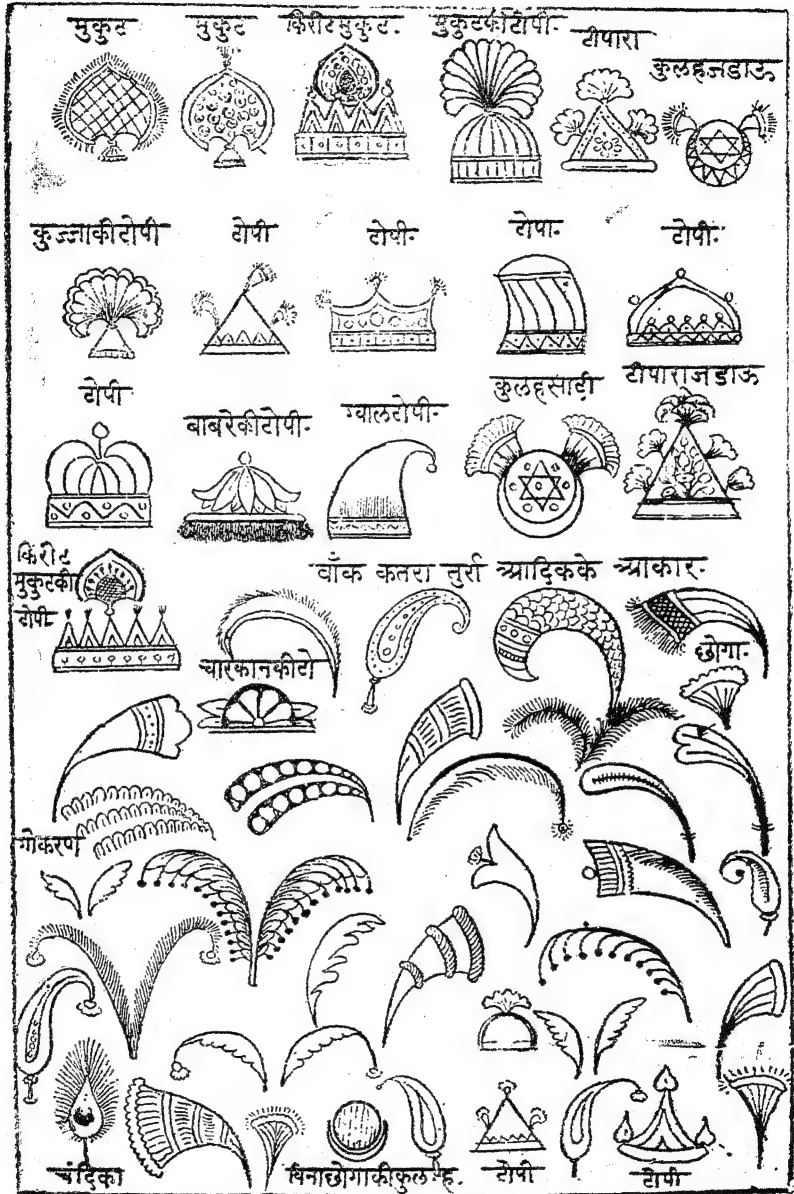 मुकुट
मुकुट
किरीटमुकुट.
मुकुटकीटोपी-
टीपारा
कुलहजडाऊ
कुज्जाकीटोपी
टोपी
टोपी-
टोपा-
टोपी-
टोपी
बाबरेकीटोपी-
ग्वालटोपी-
कुलहसादी
टीपाराजडाऊ
किरीट
मुकुटकी
टोपी-
वाँक कतरा तुर्रा आदिकके आकार-
चारकानकीटो
छोगा-
गोकरण
चंद्रिका
विनाछोगाकीकुलह.
टोपी
टोपी